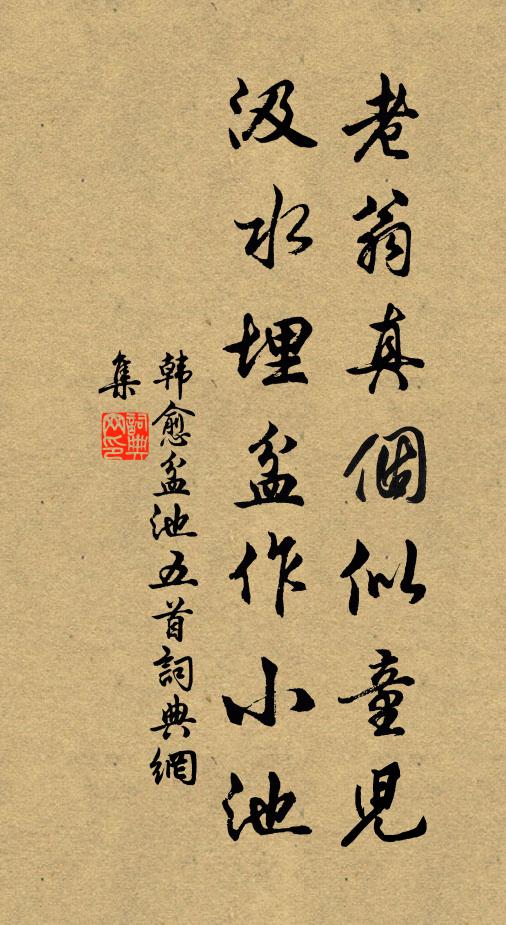 老翁真個似童兒
汲水埋盆作小池
韩愈盆池五首詞典網
集
詞典网印